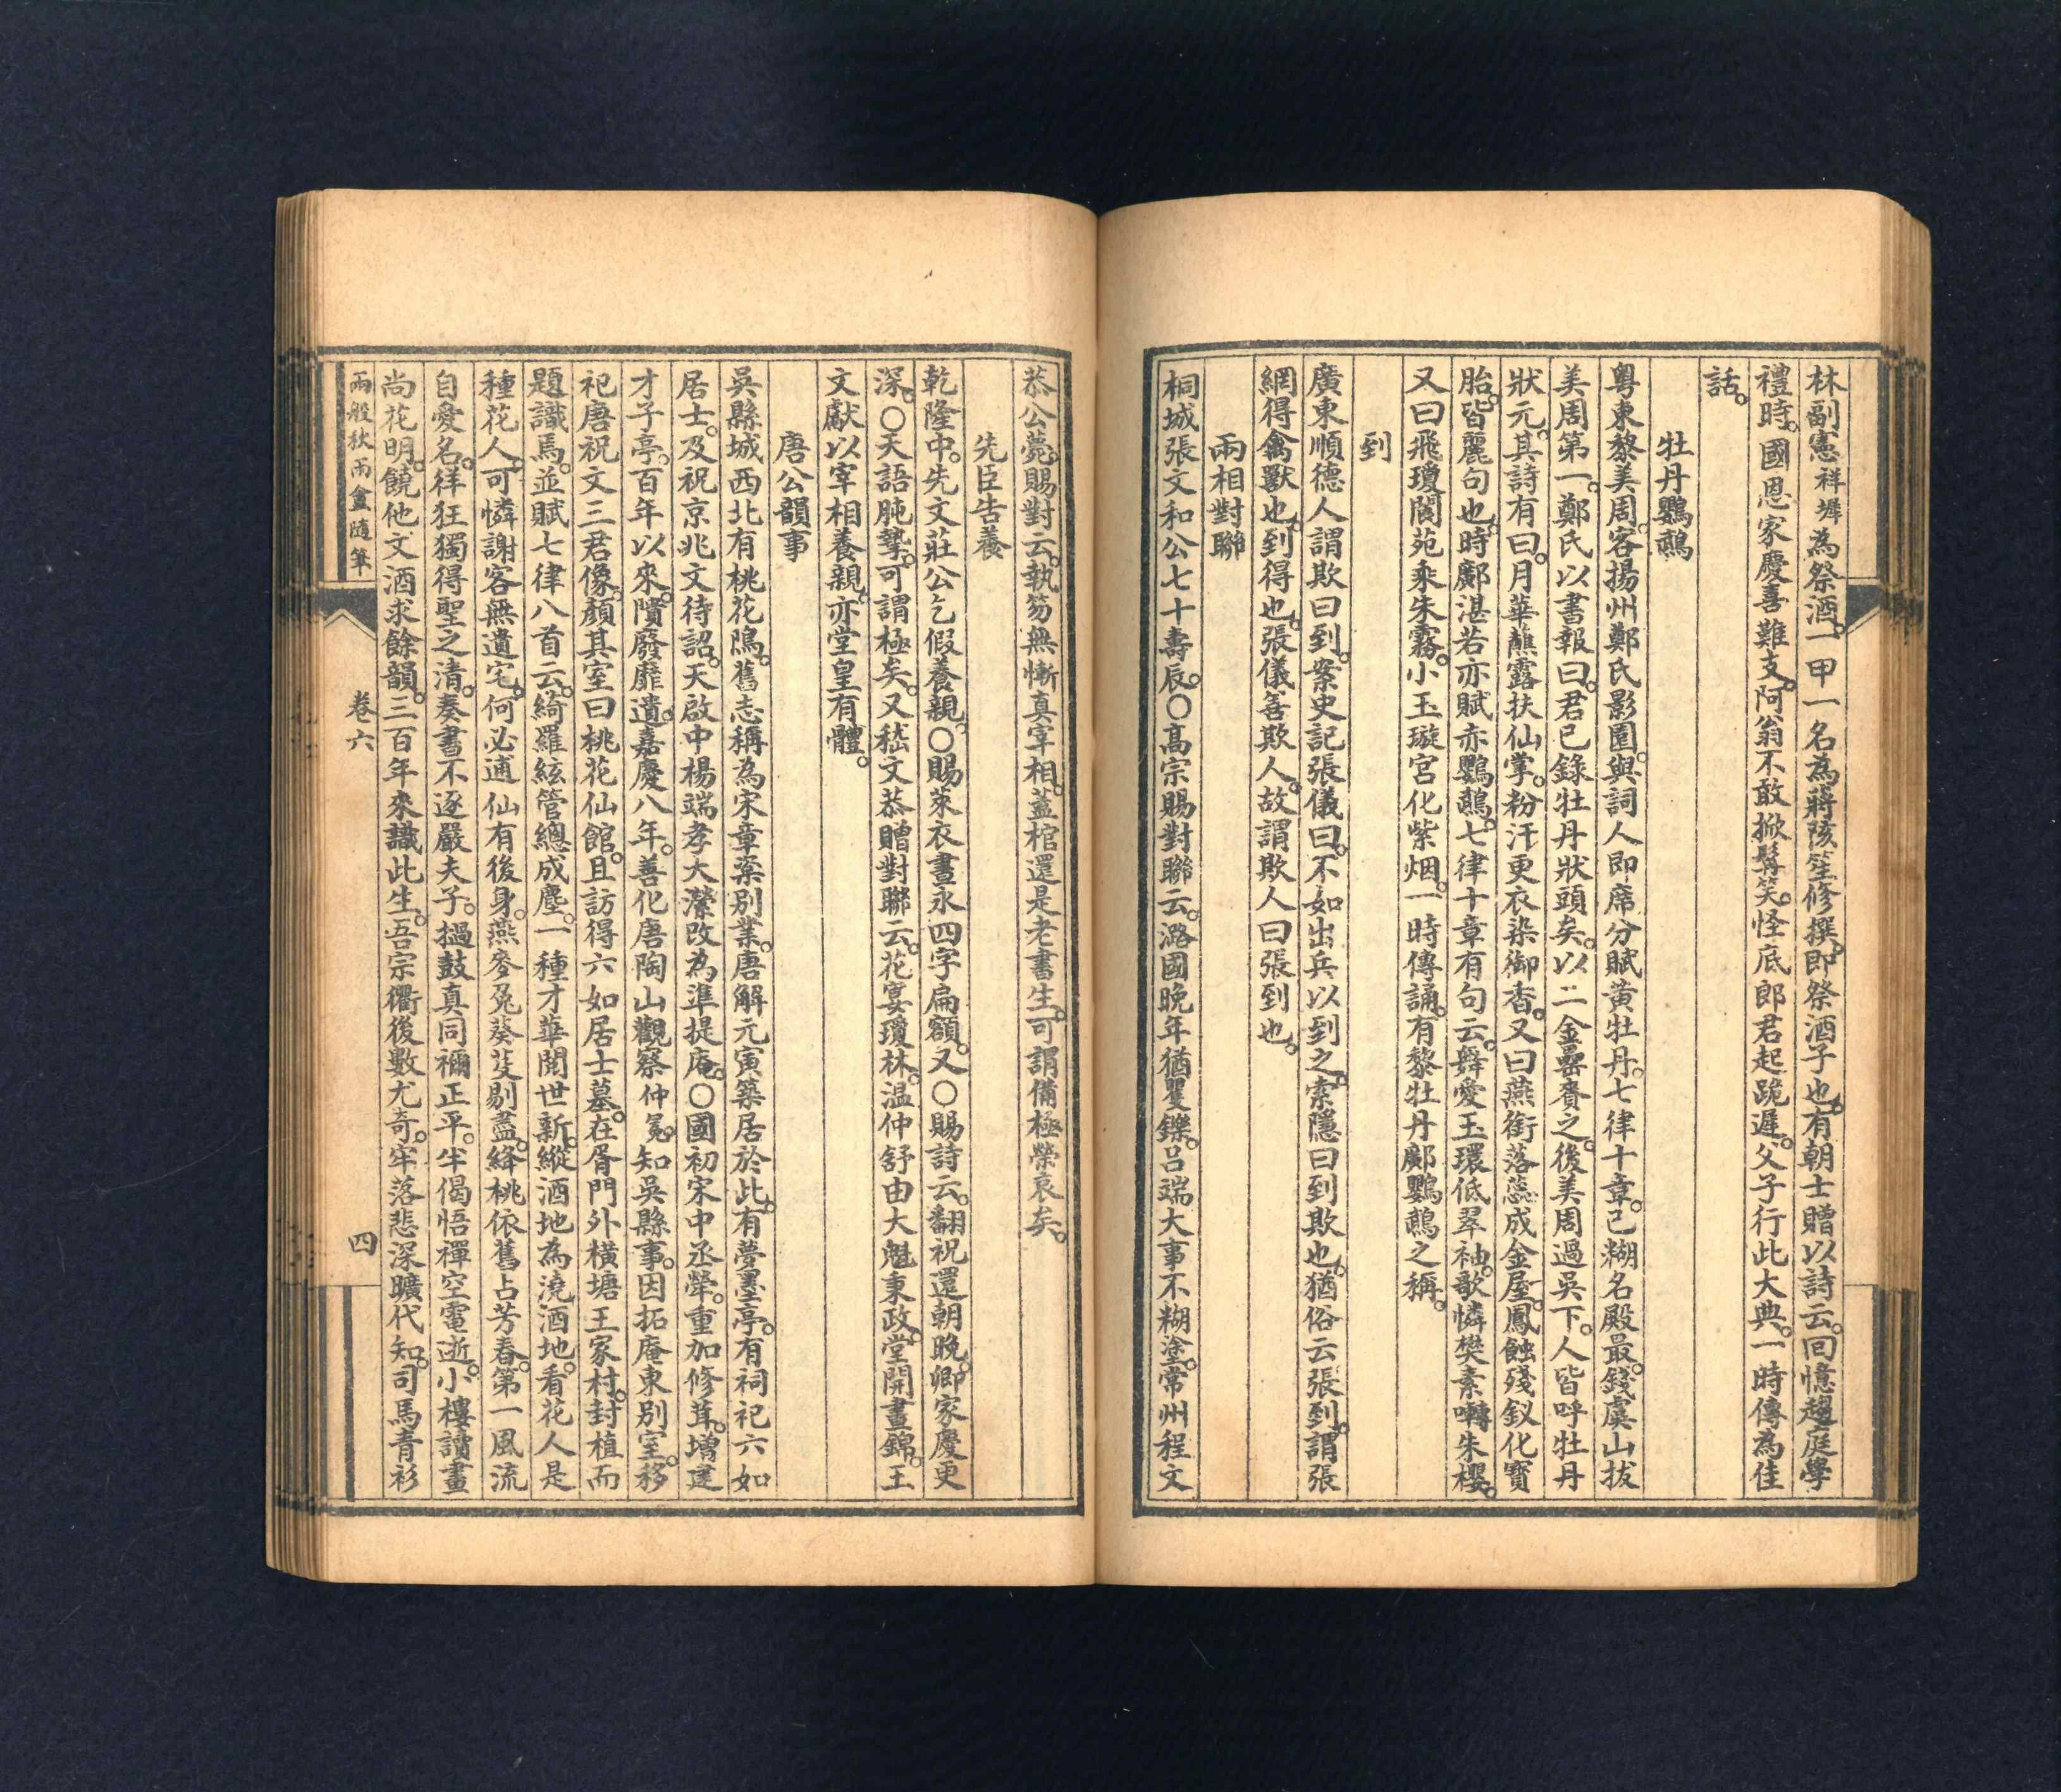 林副憲祥墀為祭酒。一甲一名為蔣陔笙修撰。即祭酒子也。有朝士贈以詩云。回憶趨庭學
禮時。國恩家慶喜難支。阿翁不敢掀髯笑。怪底郎君起跪遲。父子行此大典。一時傳為佳
話。
牡丹鸚鵡
粵東黎美周。客揚州鄭氏影園。與詞人即席分賦黃牡丹。七律十章。已糊名殿最。錢虞山拔
美周第一。鄭氏以書報曰。君已錄牡丹狀頭矣。以二金罍賚之。後美周過吳下。人皆呼牡丹
狀元。其詩有曰。月華蘸露扶仙掌。粉汗更衣染御香。又曰燕銜落蕊成金屋。鳳蝕殘釵化寶
胎。皆麗句也。時鄺湛若亦賦赤鸚鵡。七律十章有句云。舞愛玉環低翠袖。歌憐樊素囀朱櫻。
又曰飛瓊閬苑乘朱霧。小玉璇宮化紫烟。一時傳誦。有黎牡丹鄺鸚鵡之稱。
到
廣東順德人謂欺曰到。案史記張儀曰。不如出兵以到之。索隱曰到欺也。猶俗云張到。謂張
網得禽獸也。到得也。張儀善欺人。故謂欺人曰張到也。
兩相對聯
桐城張文和公七十壽辰。〇高宗賜對聯云。潞國晚年猶矍鑠。呂端大事不糊塗。常州程文
恭公薨。賜對云。執笏無慚真宰相。蓋棺還是老書生。可謂備極榮哀矣。
先臣告養
乾隆中。先文莊公乞假養親。〇賜萊衣晝永四字扁額。又〇賜詩云。翻祝還朝晚。卿家慶更
深。〇天語肫摯。可謂極矣。又嵇文恭贈對聯云。花宴瓊林。溫仲舒由大魁秉政。堂開晝錦。王
文獻以宰相養親。亦堂皇有體。
唐公韻事
吳縣城西北有桃花隖。舊志稱為宋章楶別業。唐解元寅築居於此。有夢墨亭。有祠祀六如
居士。及祝京兆文待詔。天啟中楊端孝大瀠改為準提庵。〇國初宋中丞犖。重加修葺。增建
才子亭。百年以來。隤廢靡遺。嘉慶八年。善化唐陶山觀察仲冕。知吳縣事。因拓庵東別室。移
祀唐祝文三君像。顏其室曰桃花仙館。且訪得六如居士墓。在胥門外橫塘王家村。封植而
題識焉。並賦七律八首云。綺羅絃管總成塵。一種才華閱世新。縱酒地為澆酒地。看花人是
種花人。可憐謝客無遺宅。何必逋仙有後身。燕麥兔葵芟剔盡。絳桃依舊占芳春。第一風流
自愛名。祥狂獨得聖之清。奏書不逐嚴夫子。撾鼓真同禰正平。半偈悟禪空電逝。小樓讀畫
尚花明。饒他文酒求餘韻。三百年來識此生。吾宗衢後數尤奇。牢落悲深曠代知。司馬青衫
兩般秋雨盦隨筆
卷六
四